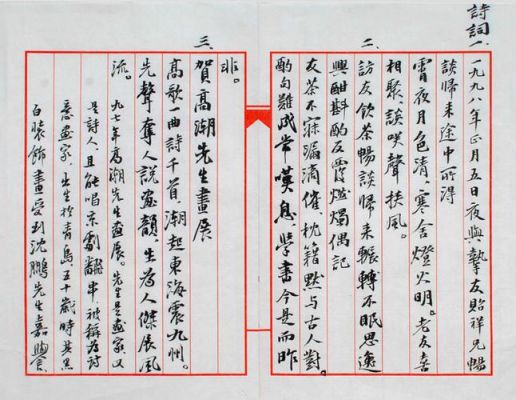 詩詞一.
一九九八年正月五日夜與摯友貽祥兄暢
談歸来途中所得
宵夜月色清,寒舍燈火明。老友喜
相聚,談咲聲扶風。
二、
訪友飲茶暢談歸来輾轉不眠思逸
興酣斟酌友霞燃燭偶記
友茶不寐漏滴催,枕籍默与古人對。
酌句難成常嘆息,学書今是而昨
非。
三、賀高潮先生畫展
高歌一曲詩千首,潮起東海震九州。
先聲奪人說画韻,生為人傑展風
流。九七年高潮先生画展。先生是画家又
是詩人且能唱京劇串,被稱為詩
意画家,出生於青島,五十歲時其黑
白裝飾畫受到沈鵬先生嘉譽